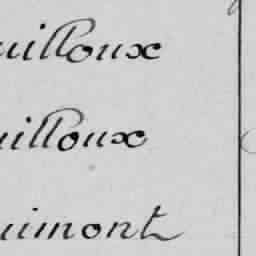 uilloux
uilloux
uimont